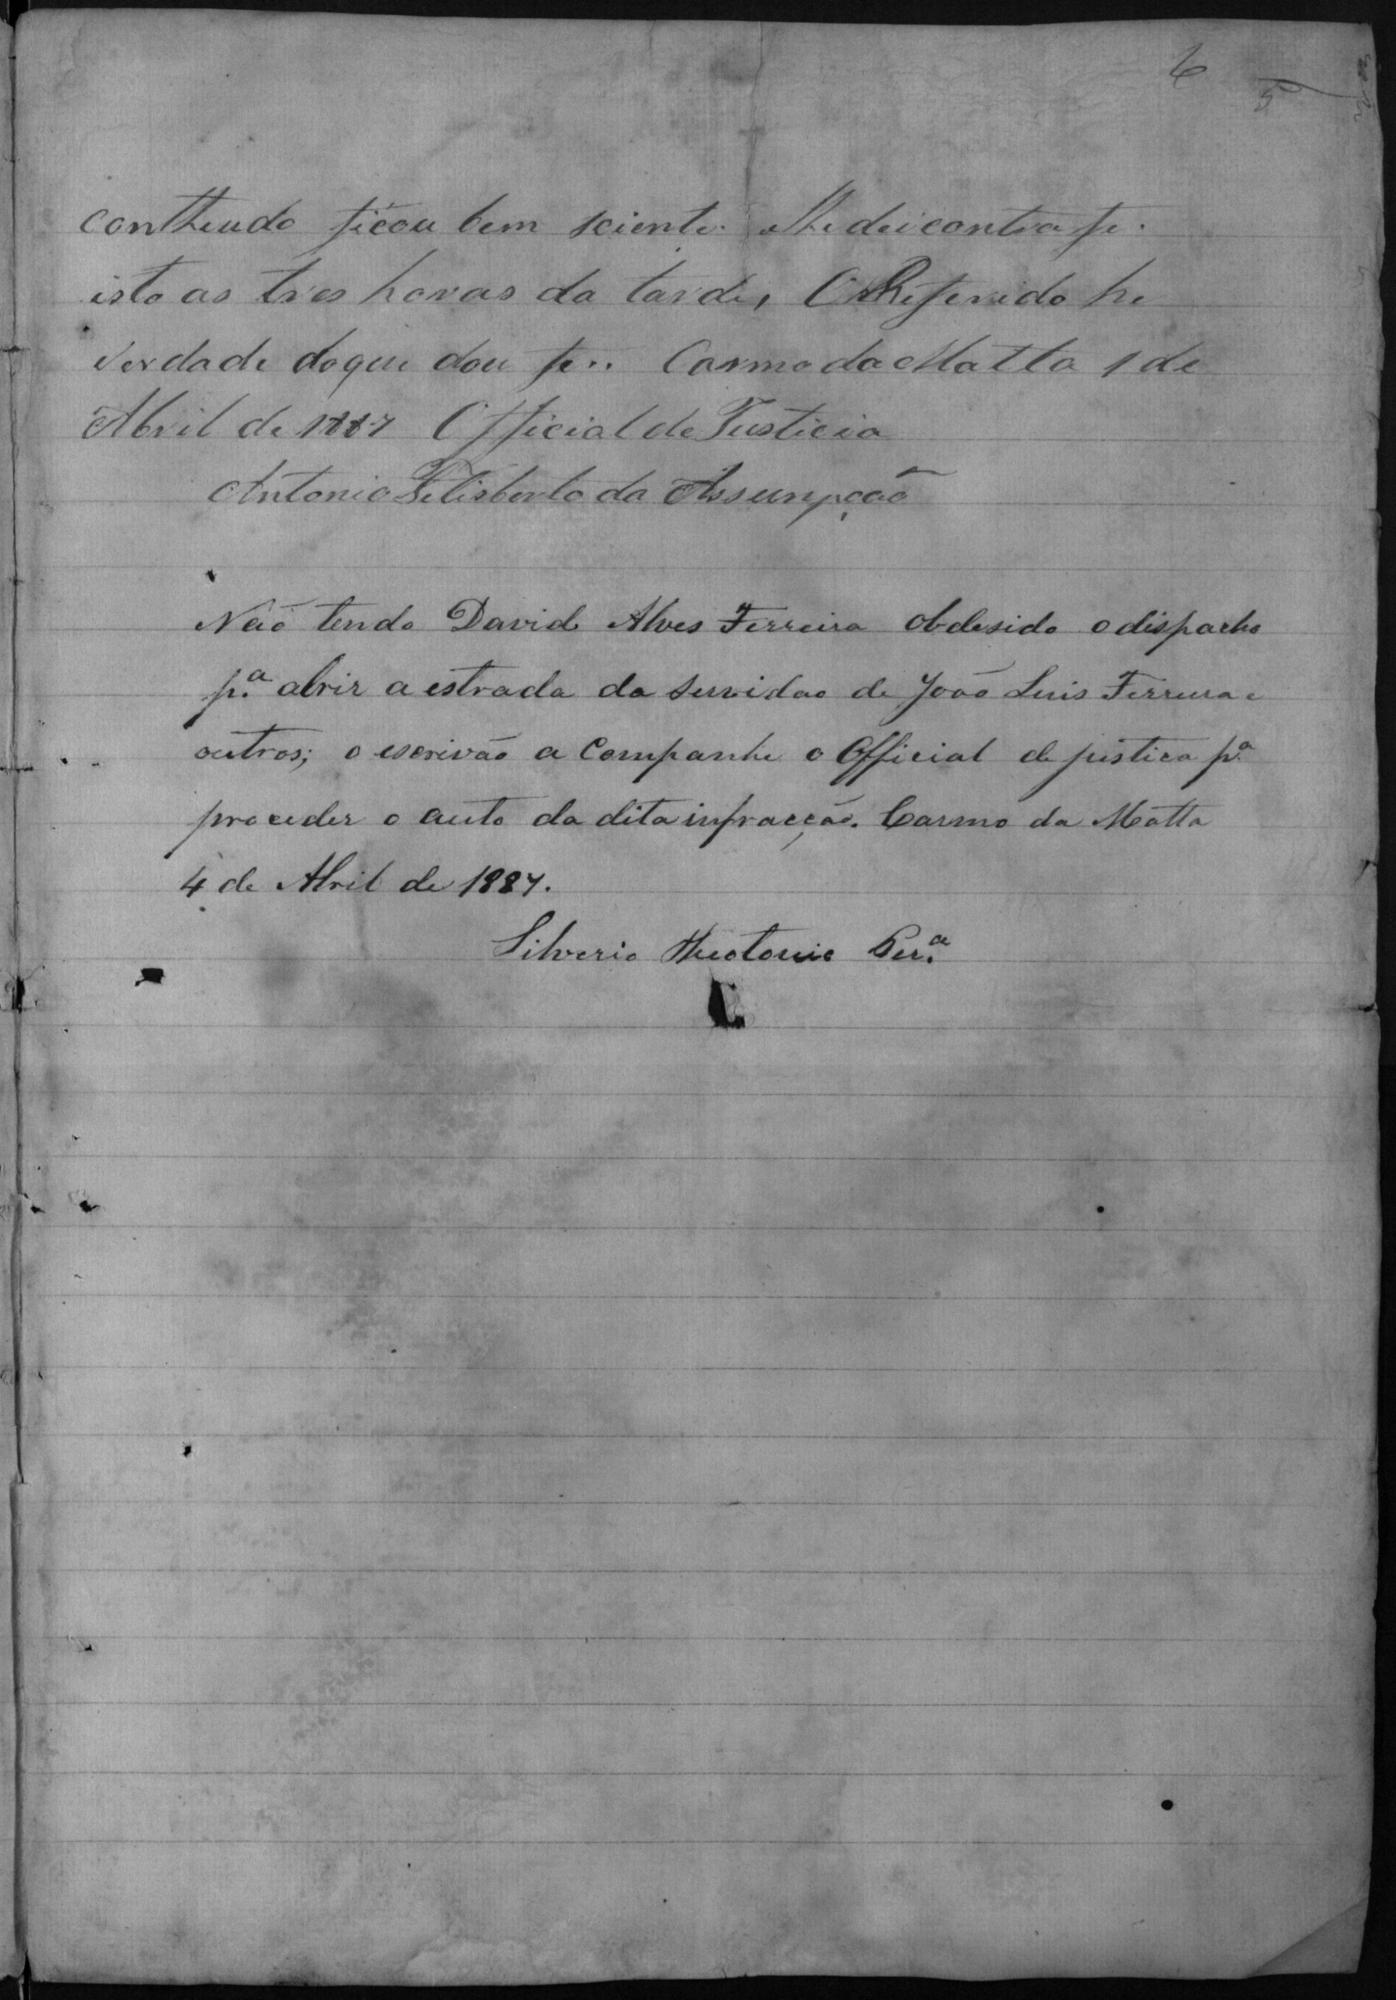 6
5
contheudo ficou bem sciente. lhe dei contra fe.
isto as tres horas da tarde, O Referido he
verdade do que dou fe.. Carmo da Matta 1 de
Abril de 1887 Official de Justicia
Antonio Felisberto da Assumpção
Não tendo David Alves Ferreira obdesido o dispacho
p.ª abrir a estrada da servidao de João Luis Ferreira e
outros; o escrivão a Companhe o Official de justica p.ª
proceder o auto da dita infracção. Carmo da Matta
4 de Abril de 1887.
Silverio Theotonio Per.ª